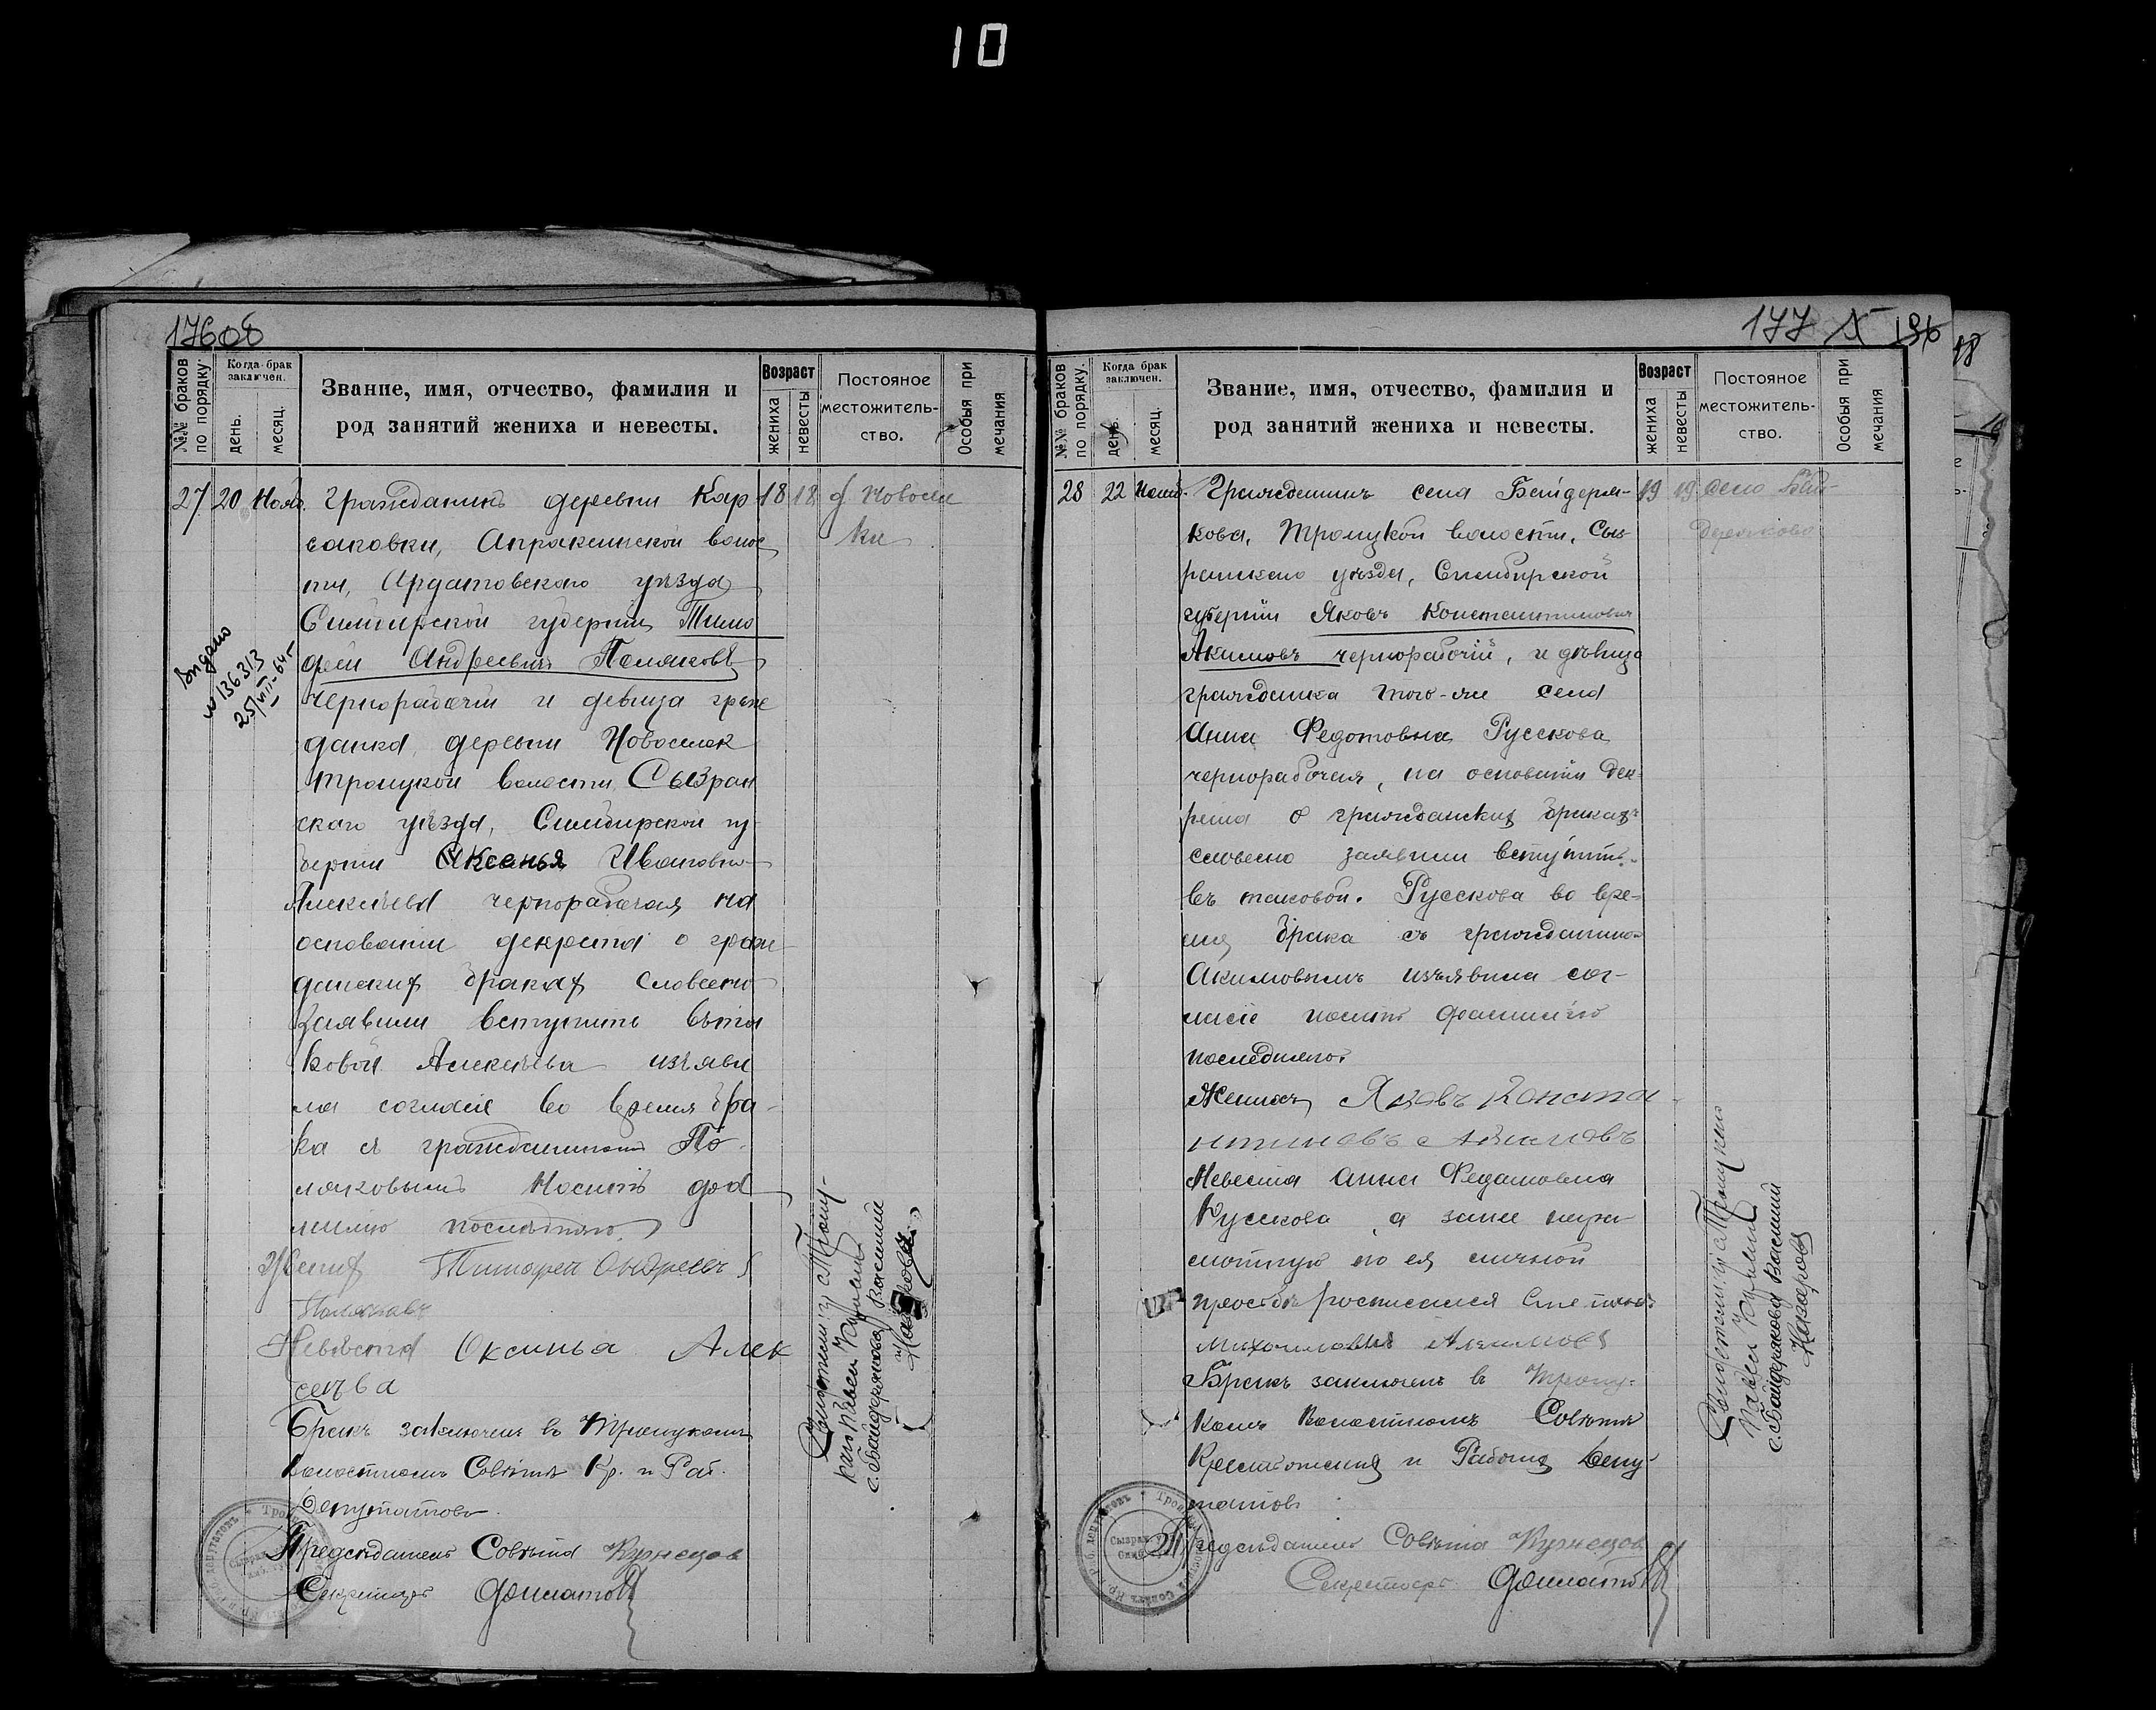 10
176об
№№ браков по порядку.
Когда брак заключен.
день.
месяц.
Звание, имя, отчество, фамилия и
род занятий жениха и невесты.
Возраст
жениха
невесты
Постояное
местожитель-
ство.
Особыя при
мечания
27 20 Нояб. Гражданинъ деревни Кар 18 18 д. Новосел
ки
Апраксинской волос
ти, Ардатовского уѣзда
Симбирской губерніи Тимо
фей Андреевичъ Поляковъ
чернорабочій и девица граж
данка, деревни Новоселок
Троицкой волости Сызран
скаго уѣзда, Симбирской гу-
берніи Аксенья Ивановна
Алексѣева чернорабочая на
основаніи декрета о граж-
данских браках словесно
заявили вступить въ та
ковой. Алексѣева изъяви
ла согласіе во время бра-
ка съ гражданином По-
ляковымъ носить фа
милию последняго.
Жених Тимофей Андреевъ
Поляковъ
Невѣста Оксинья Алек
сеѣва
Бракъ заключен в Троицкомъ
волостномъ Совѣтѣ Кр. и Раб.
Депутатовъ.
Предсѣдатель Совѣта Кузнецов
Секретарь
Выдано
№ 136313
25/VIII-64 г
Свидѣтели: с. Троиц-
каго Павел
с. Байдерякова Василий
Назаров
177
196
18
№№ браков по порядку.
Когда брак заключен.
день.
месяц.
Звание, имя, отчество, фамилия и
род занятий жениха и невесты.
Возраст
жениха
невесты
Постояное
местожитель-
ство.
Особыя при
мечания
28 22 Нояб. Гражданинъ села Байдеря- 19 19 Село Бай-
дераково
кова, Троицкой волости, Сыз
ранскаго уѣзда, Симбирской
губерніи Яковъ Константиновичъ
Акимовъ чернорабочій, и дѣвица
гражданка того-же села
Анна Федотовна Русскова
чернорабочая, на основаніи дек-
рета о гражданских браках
словесно заявили вступить
въ таковой. Русскова во вре-
мя брака съ гражданином
Акимовымъ изъявила сог-
ласіе носить фамилію
последняго.
Жених Яковъ Конста
нтиновъ Акимовъ
Невеста Анна Федотовна
Русскова, а за нее негра
мотную по ея личной
просьбе росписался
Акимовъ
Бракъ заключенъ в Троиц-
комъ Волостномъ Совѣтѣ
Крестьянских и Рабочих Депу
татов
Предсѣдатель Совѣта Кузнецов
Секретарь
Свидетели: с. Троицкого
Павел
с. Байдерякова Василий
Назаров